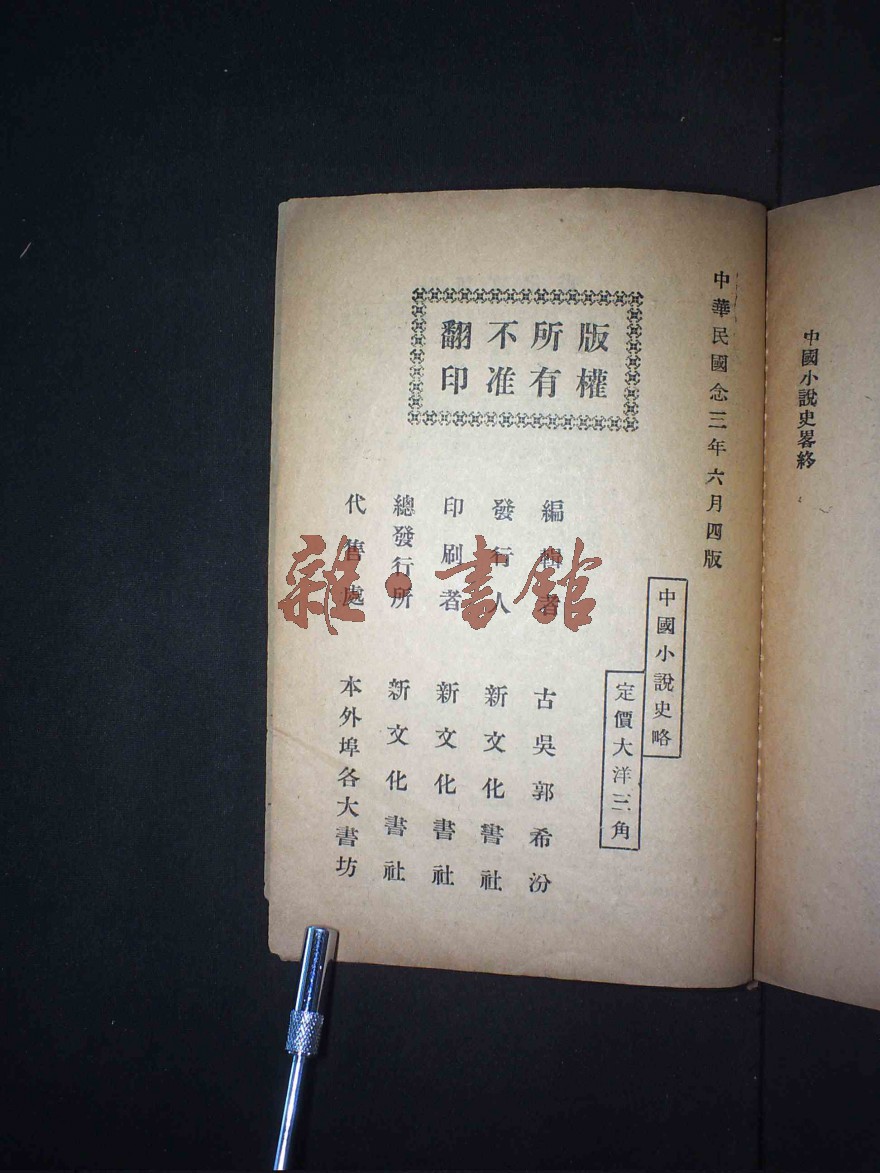 中國小說史畧終
中華民國念三年六月四版
中國小說史略
定價大洋三角
版權
所有
不准
翻印
編輯者 古吳郭希汾
發行人 新文化書社
印刷者 新文化書社
總發行所 新文化書社
代售處 本外埠各大書坊
雜·書館